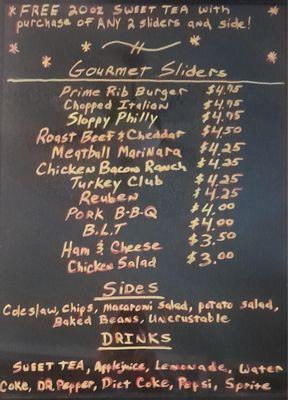 * FREE 20oz SWEET TEA with *
purchase of ANY 2 sliders and side!
Gourmet Sliders
Prime Rib Burger $4.75
Chopped Italian $4.75
Sloppy Philly $4.75
Roast Beef & Cheddar $4.50
Meatball Marinara $4.25
Chicken Bacon Ranch $4.25
Turkey Club $4.25
Reuben $4.25
Pork B-B-Q $4.00
B.L.T $4.00
Ham & Cheese $3.50
Chicken Salad $3.00
Sides
Coleslaw, Chips, macaroni salad, potato salad,
Baked Beans, Uncrustable
DRINKS
SWEET TEA, Applejuice, Lemonade, Water
Coke, DR. Pepper, Diet Coke, Pepsi, Sprite